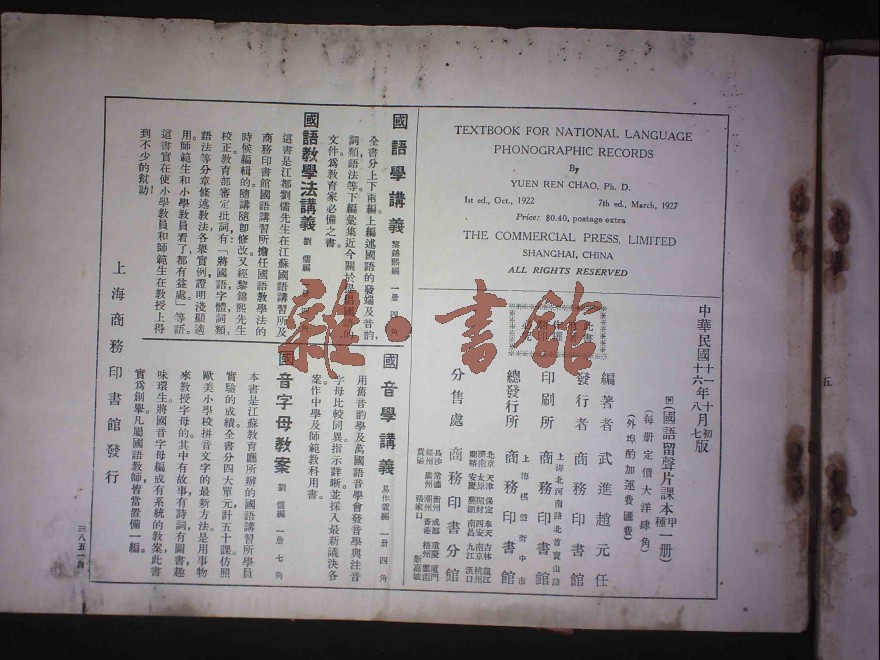 TEXTBOOK FOR NATIONAL LANGUAGE
PHONOGRAPHIC RECORDS
By
YUEN REN CHAO, Ph. D.
1st ed., Oct., 1922 7th ed., March, 1927
Price: $0.40, postage extra
THE COMMERCIAL PRESS, LIMITED
SHANGHAI, CHINA
ALL RIGHTS RESERVED
中華民國十一年十月初版
十六年八月七版
國語留聲片課本甲種一册
(每册定價大洋肆角)
(外埠酌加運費匯費)
編著者 武進趙元任
發行者 商務印書館
印刷所 商務印書館
上海北河南路北首寶山路
總發行所 商務印書館
上海棋盤街中市
分售處 商務印書分館
國語學講義 黎錦熙編 一册 四角
全書分上下兩編上編述國語的發端及音韵,
詞類語法等。下編彙集近今關於提倡國語的
文件爲教育家必備之書。
國語教學法講義 劉儒編
這書是江都劉儒先生在江蘇國語講習所及
商務印書館國語講習所擔任國語教學法的
時候編輯的隨講隨卽修改又經黎錦熙先生
校正教育部審定批詞有:「將國語字體詞類
語法等分章條述教法各舉實例證明淺顯適
用師範生和小學教員看了都有益處」等語
這書實在使小學教員和師範生在教授上得
到不少的幫助!
國音學講義 易作霖編 一册 四角
用舊音韵學及萬國語音學會發音學與注音
字母比較同異指示詳晰並採入最新議決各
案作中學及師範教科用書。
國音字母教案 劉儒編 一册 七角
本書是江蘇教育廳所辦的國語講習所學員
實驗的成績。全書分四大單元,計五十課,仿照
歐美小學校拼音文字的最新方法是用事物
來教授字母的。其中有故事有詩詞有圖畫趣
味環生將國音字母編成有系統的教案此書
實爲創舉凡屬國語教師皆當置備一編。
上海商務印書館發行
三八五一自
五
雜·書館